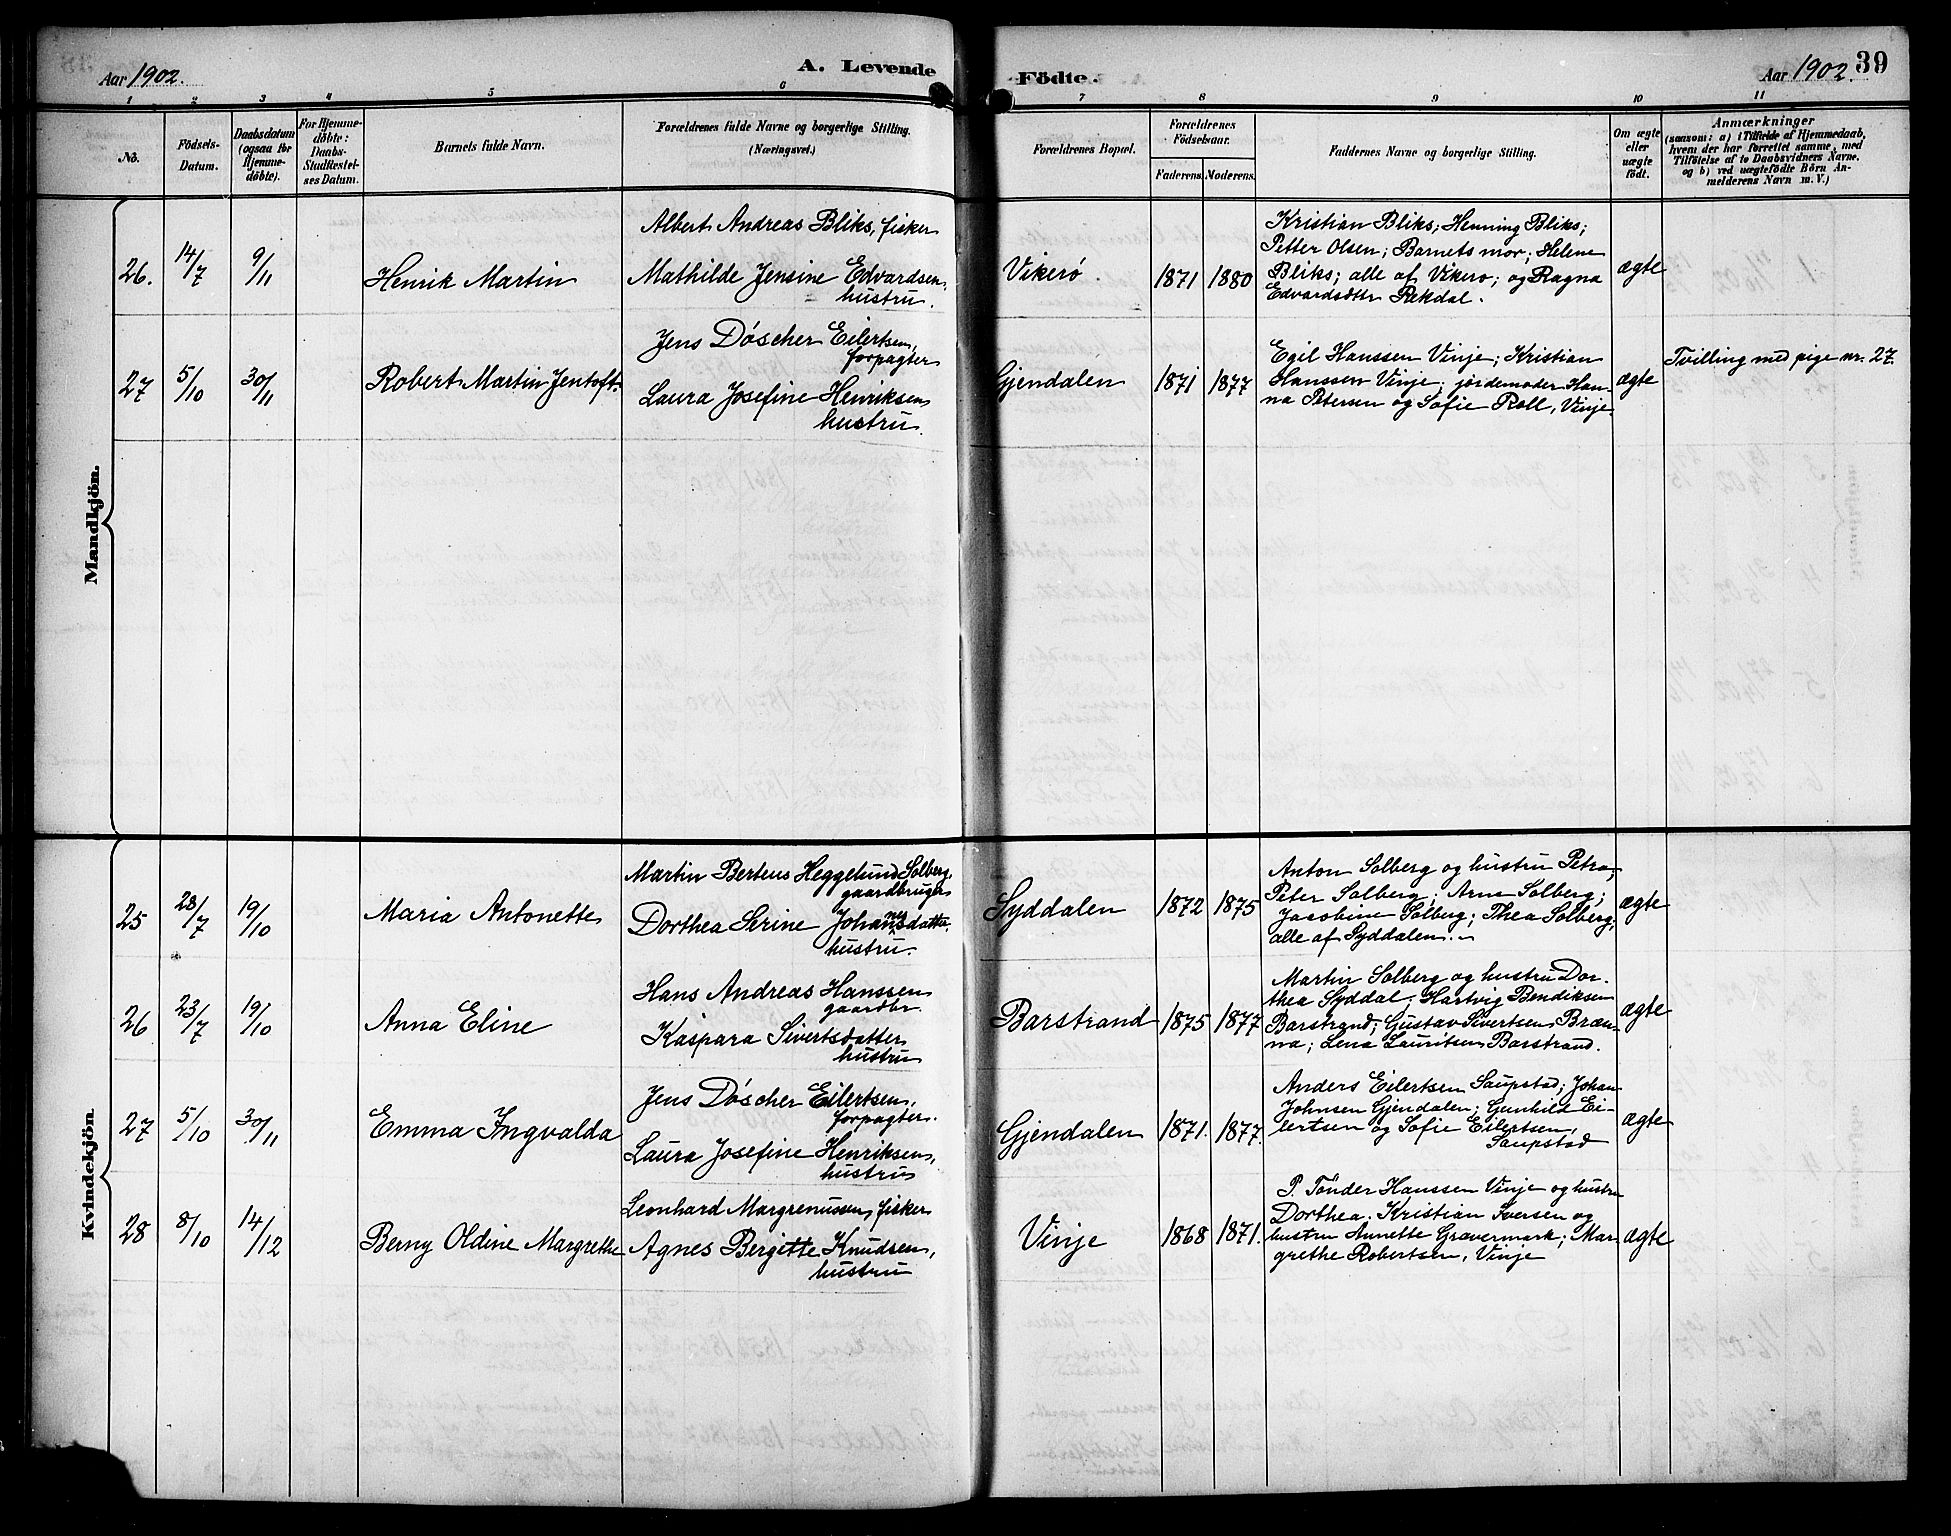 Aar 1902.
A. Levende
Födte.
Aar 1902.
39
1 2 3 4 5 6 7 8 9 10 11
No.
Födsels-
Datum.
Daabsdatum
(ogsaa for
Hjemme-
döbte).
For Hjemme-
döbte:
Daabs-
Stadfæstel-
ses Datum.
Barnets fulde Navn.
Forældrenes fulde Navne og borgerlige Stilling.
(Næringsvei.)
Forældrenes Bopæl.
Forældrenes
Födselsaar.
Faderens. Moderens.
Faddernes Navne og borgerlige Stilling.
Om ægte
eller
uægte
födt.
Anmærkninger
(saasom: a) i Tilfælde af Hjemmedaab,
hvem der har forrettet samme, med
Tilföielse af to Daabsvidners Navne.
og b) ved uægtefödte Börn An-
melderens Navn m. V.)
Mandkjön.
26. 14/7 9/11
Henrik Martin
Albert Andreas Bliks, fisker
Mathilde Jensine Edvardsen
hustru.
Vikerø.
1871 1880
Kristian Bliks; Henning Bliks;
Petter Olsen; Barnets mor; Helene
Bliks; alle af Vikerø; og Ragna
Edvardsdttr Rekdal.
ægte
27 5/10 30/11
Robert Martin Jentoft
Jens Döscher Eilertsen,
forpagter
Laura Josefine Henriksen
hustru.
Gjendalen
1871 1877
Egil Hanssen Vinje; Kristian
Hanssen Vinje; jordemoder Han-
na Petersen og Sofie Roll, Vinje
ægte
Tvilling med pige nr. 27.
Kvindekjön.
25 28/7 19/10
Maria Antonette
Martin Berteus Heggelund Solberg,
gaardbruger
Dorthea Serine Johannsdatter,
hustru.
Syddalen
1872 1875
Anton Solberg og hustru Petra;
Peter Solberg; Arne Solberg;
Jacobine Solberg; Thea Solberg;
alle af Syddalen.
ægte
26 23/7 19/10
Anna Eline
Hans Andreas Hanssen
gaardbr.
Kaspara Sivertsdatter
hustru
Barstrand
1875 1877
Martin Solberg og hustru Dor-
thea Syddal; Hartvig Bendiksen
Barstrand; Gustav Sivertsen Bræn-
na; Lena Lauritsen Barstrand.
ægte
27 5/10 30/11
Emma Ingvalda
Jens Döscher Eilertsen,
forpagter.
Laura Josefine Henriksen,
hustru
Gjendalen
1871. 1877.
Anders Eilertsen Saupstad; Johan
Johnsen Gjendalen; Gunhild Ei-
lertsen og Sofie Eilertsen,
Saupstad
ægte
28 8/10 14/12
Berny Oldine Margrethe
Leonhard Margrenussen, fisker
Agnes Bergitte Knudsen,
hustru
Vinje
1868 1871.
P. Tönder Hanssen Vinje og hustru
Dorthea. Kristian Iversen og
hustru Annette Gravermark; Mar-
grethe Robertsen, Vinje
ægte